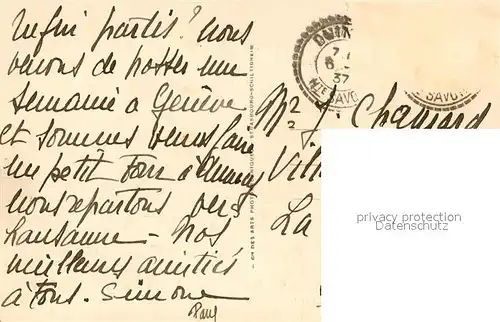 Enfin partis! nous
venons de passer une
semaine à Genève
et sommes venus faire
un petit tour à Annecy
nous repartons vers
Lausanne - Nos
meilleurs amitiés
à tous. Simone
Paul
Chapsard
Vill
La
37
SAVOIE
privacy protection
Datenschutz